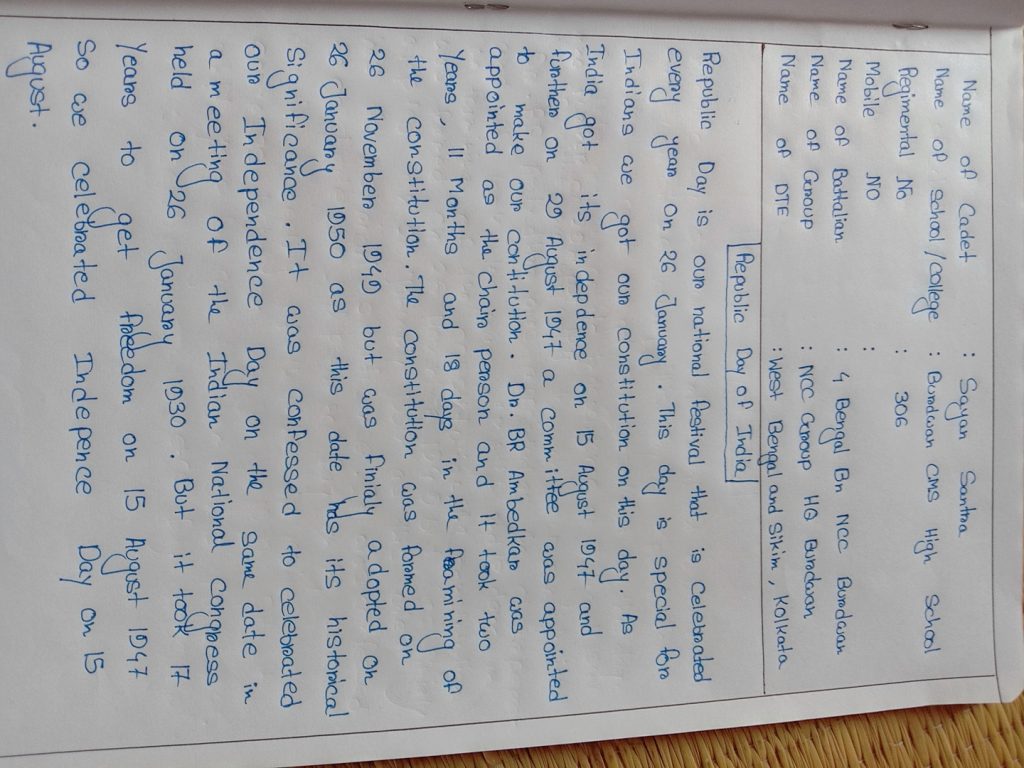 Name of Cadet : Sayan Santra
Name of school/college : Burdwan CMS High School
Regimental No : 306
Mobile No :
Name of Battalian : 4 Bengal Bn NCC Burdwan
Name of Group : NCC Group HQ Burdwan
Name of DTE : West Bengal and Sikim, Kolkata
Republic Day of India
Republic Day is our national festival that is celebrated
every year on 26 January. This day is special for
Indians we got our constitution on this day. As
India got its indepence on 15 August 1947 and
further on 29 August 1947 a committee was appointed
to make our contitution. Dr. BR Ambedkar was
appointed as the chair person and it took two
Years, 11 Months and 18 days in the framining of
the constitution. The constitution was formed on
26 November 1949 but was finialy adopted on
26 January 1950 as this date has its historical
Significance. It was confessed to celebrated
our Independence Day on the same date in
a meeting of the Indian National Congress
held on 26 January 1930. But it took 17
Years to get freedom on 15 August 1947
So we celebrated Indepence Day on 15
August.